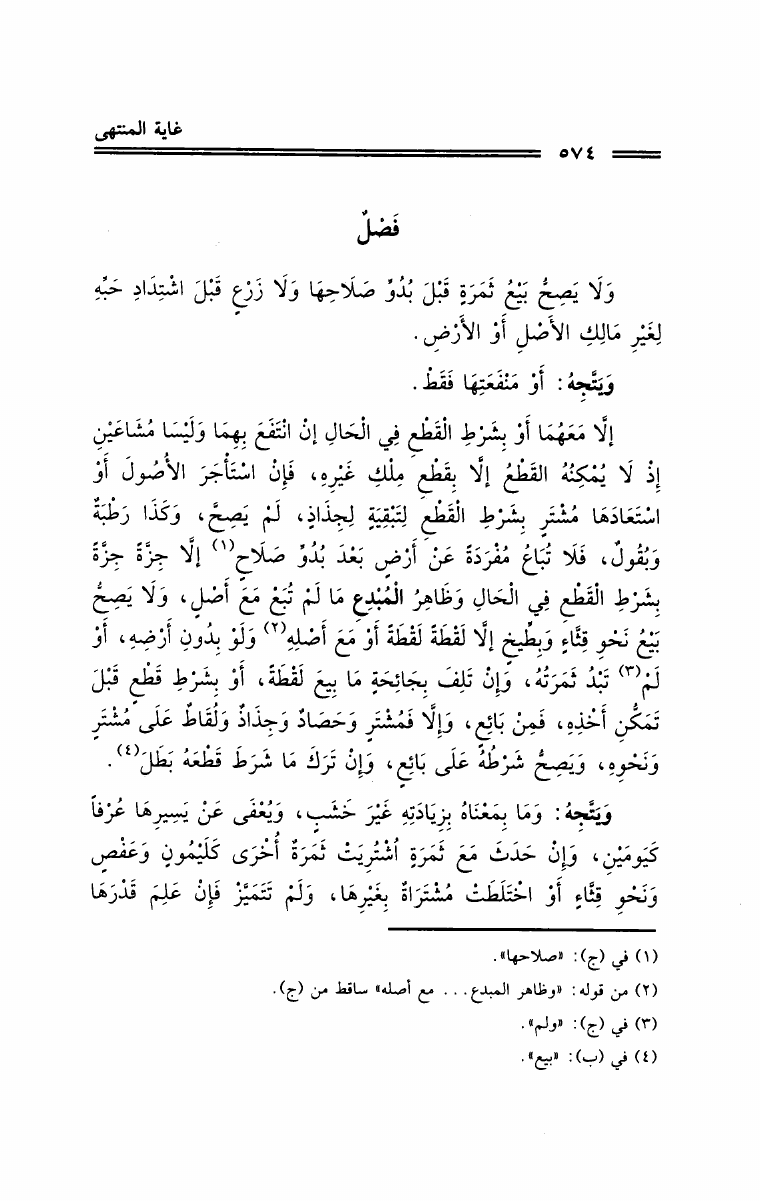 غاية المنتهى
٥٧٤
فَصْلٌ
وَلَا يَصِحُّ بَيْعُ ثَمَرَةٍ قَبْلَ بُدُوِّ صَلَاحِهَا وَلَا زَرْعٍ قَبْلَ اشْتِدَادِ حَبِّهِ
لِغَيْرِ مَالِكِ الأَصْلِ أَوْ الأَرْضِ.
وَيَتَّجِهُ: أَوْ مَنْفَعَتِهَا فَقَطْ.
إلَّا مَعَهُمَا أَوْ بِشَرْطِ الْقَطْعِ فِي الْحَالِ إنْ انْتَفَعَ بِهِمَا وَلَيْسَا مُشَاعَيْنِ
إذْ لَا يُمْكِنُهُ القَطْعُ إلَّا بِقَطْعِ مِلْكِ غَيْرِهِ، فَإِنْ اسْتَأْجَرَ الأُصُولَ أَوْ
اسْتَعَادَهَا مُشْتَرٍ بِشَرْطِ القَطْعِ لِتَبْقِيَةٍ لِجِذَاذٍ، لَمْ يَصِحَّ، وَكَذَا رَطْبَةٌ
وَبُقُولٌ، فَلَا تُبَاعُ مُفْرَدَةً عَنْ أَرْضٍ بَعْدَ بُدُوِّ صَلَاحٍ(١) إلَّا جِزَّةً جِزَّةً
بِشَرْطِ القَطْعِ فِي الْحَالِ وَظَاهِرُ الْمُبْدِعِ مَا لَمْ تُبَعْ مَعَ أَصْلٍ، وَلَا يَصِحُّ
بَيْعُ نَحْوِ قِثَّاءٍ وَبِطِّيخٍ إلَّا لَقْطَةً لَقْطَةً أَوْ مَعَ أَصْلِهِ(٢) وَلَوْ بِدُونِ أَرْضِهِ، أَوْ
لَمْ(٣) تَبْدُ ثَمَرَتُهُ، وَإِنْ تَلِفَ بِجَائِحَةٍ مَا بِيعَ لَقْطَةً، أَوْ بِشَرْطِ قَطْعٍ قَبْلَ
تَمَكُّنِ أَخْذِهِ، فَمِنْ بَائِعٍ، وَإِلَّا فَمُشْتَرٍ وَحَصَادٌ وَجِذَاذٌ وَلُقَاطٌ عَلَى مُشْتَرٍ
وَنَحْوِهِ، وَيَصِحُّ شَرْطُهُ عَلَى بَائِعٍ، وَإِنْ تَرَكَ مَا شَرَطَ قَطْعَهُ بَطَلَ(٤).
وَيَتَّجِهُ: وَمَا بِمَعْنَاهُ بِزِيَادَتِهِ غَيْرَ خَشَبٍ، وَيُعْفَى عَنْ يَسِيرِهَا عُرْفاً
كَيَوْمَيْنِ، وَإِنْ حَدَثَ مَعَ ثَمَرَةٍ اُشْتُرِيَتْ ثَمَرَةٌ أُخْرَى كَلَيْمُونٍ وَعَفْصٍ
وَنَحْوِ قِثَّاءٍ أَوْ اخْتَلَطَتْ مُشْتَرَاةٌ بِغَيْرِهَا، وَلَمْ تَتَمَيَّزْ فَإِنْ عَلِمَ قَدْرَهَا
(١) في (ج): «صلاحها».
(٢) من قوله: «وظاهر المبدع... مع أصله» ساقط من (ج).
(٣) في (ج): «ولم».
(٤) في (ب): «بيع».